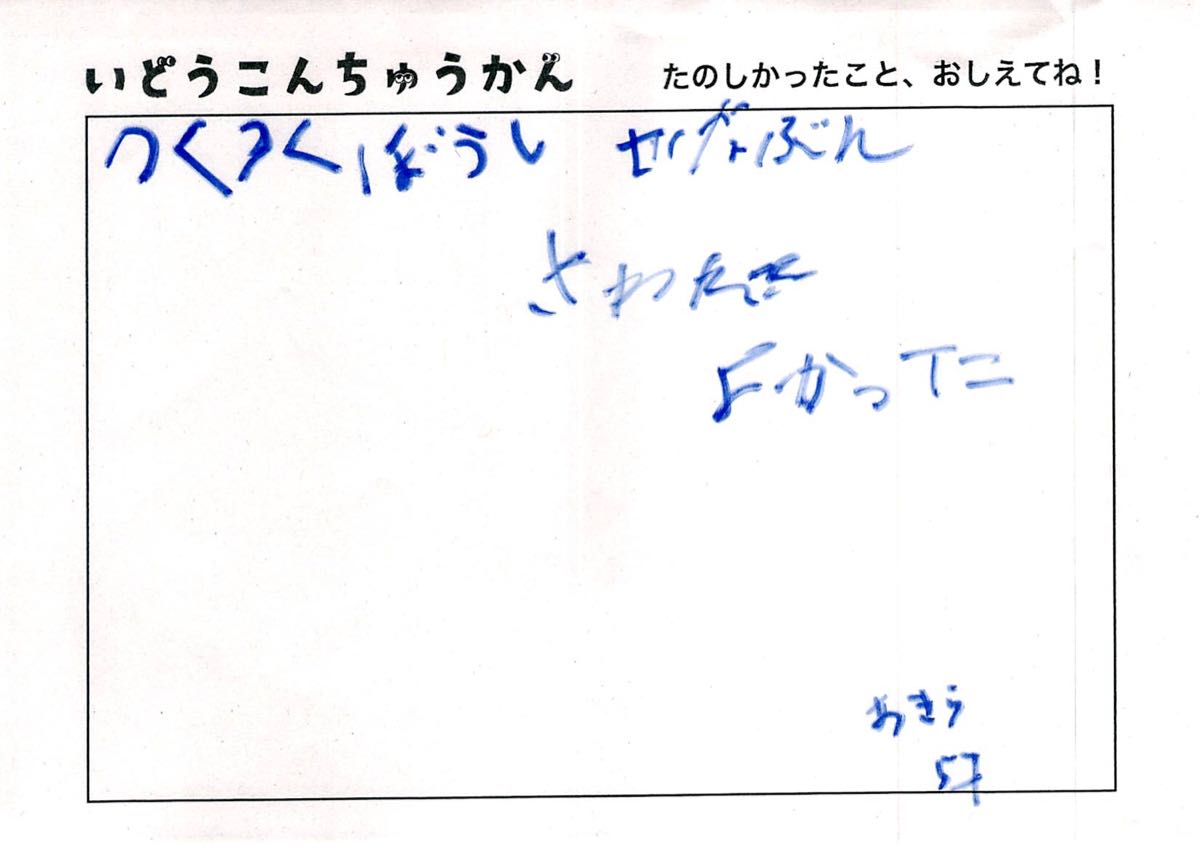 いどうこんちゅうかん たのしかったこと、おしえてね！
つくつくぼうし ぜんぶん
さわれて
よかった
あきら
57